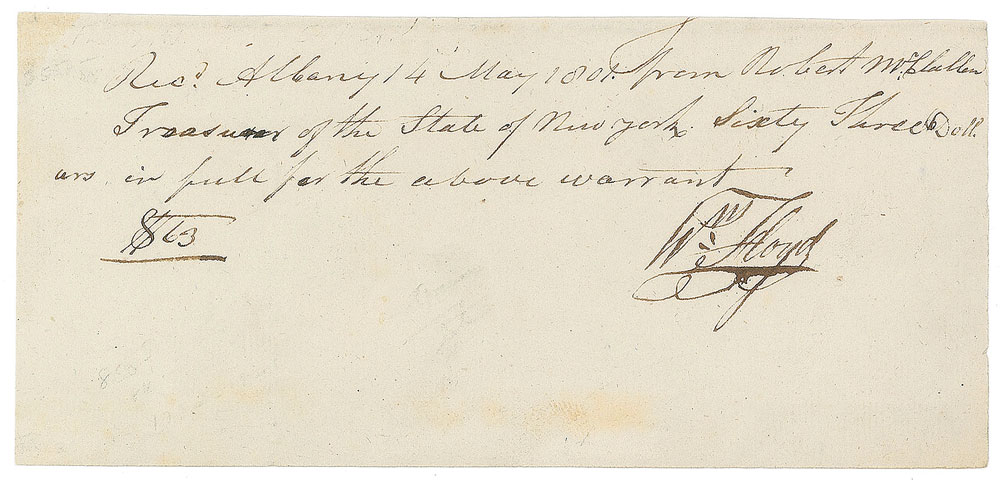 Recd. Albany 14 May 1801. from Robert McClallen
Treasurer of the State of New york Sixty Three Doll
ars in full for the above warrant
$63
Wm Floyd